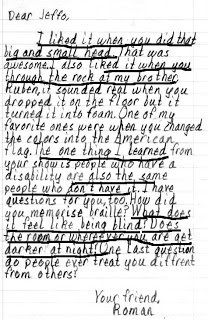 Dear Jeffo,
I liked it when you did that
big and small head. That was
awesome. I also liked it when you
through the rock at my brother
Ruben, it sounded real when you
dropped it on the floor but it
turned it into foam. One of my
favorite ones were when you changed
the colors into the American
flag. The one thing I learned from
your show is people who have a
disability are also the same
people who don't have it. I have
questions for you, too. How did
you memorise braille? What does
it feel like being blind? Does
the room or wherever you are get
darker at night? One last question
do people ever treat you different
from others?
Your friend,
Roman